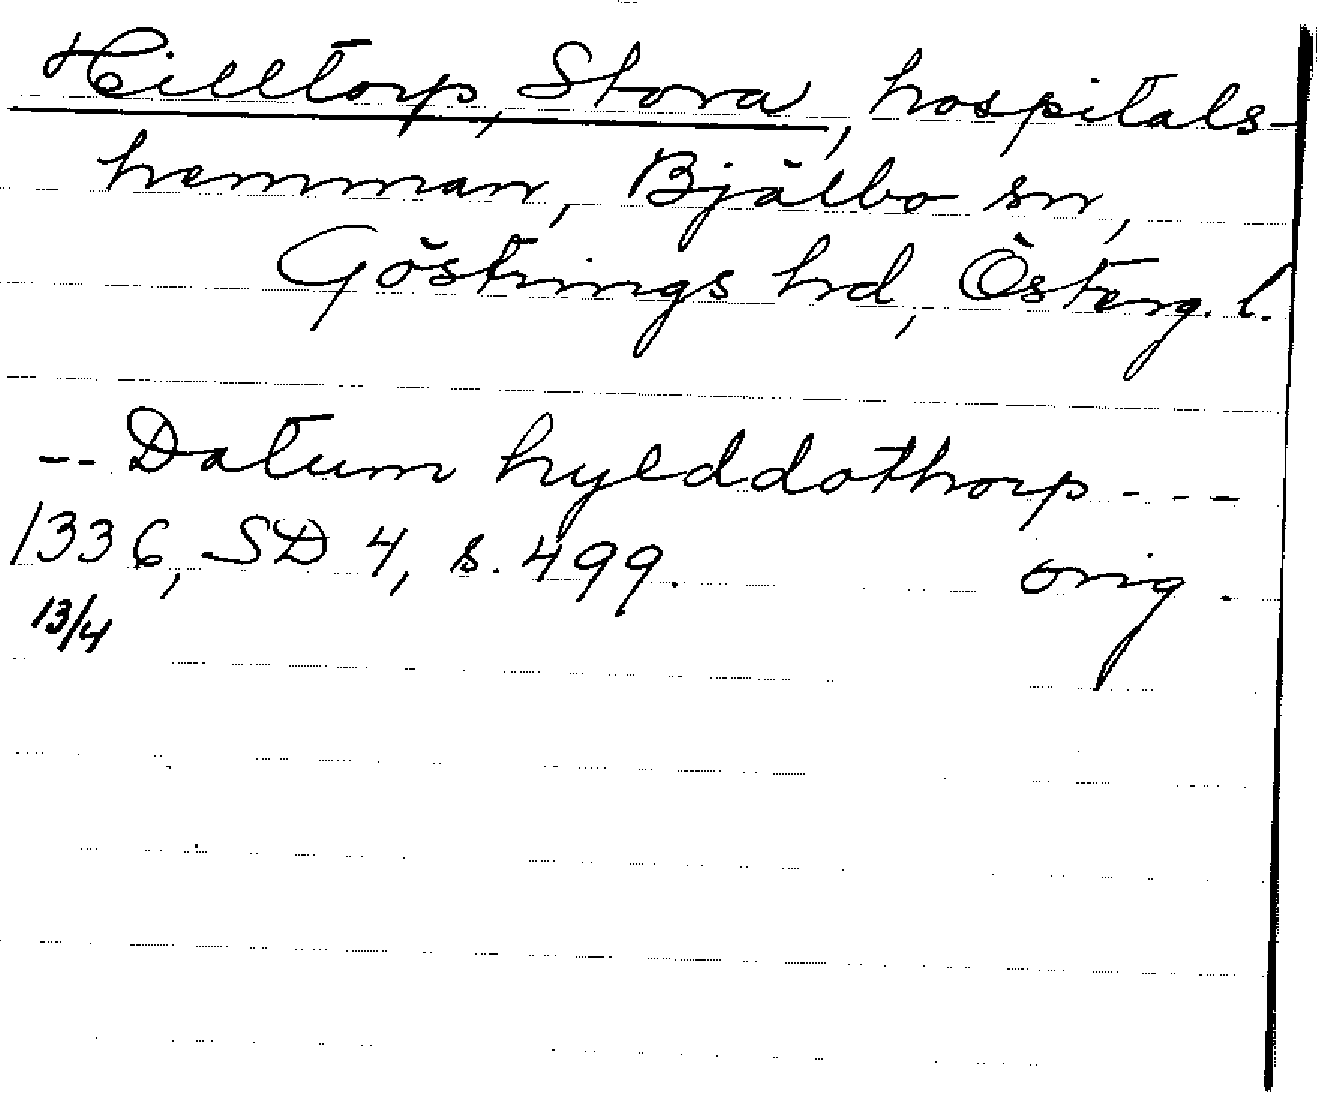 Hilltorp, Stora, hospitals-
hemman, Bjälbo sn,
Göstrings hd, Österg. l.
-- Datum hylddothorp ---
1336, SD 4, s. 499. orig.
13/4